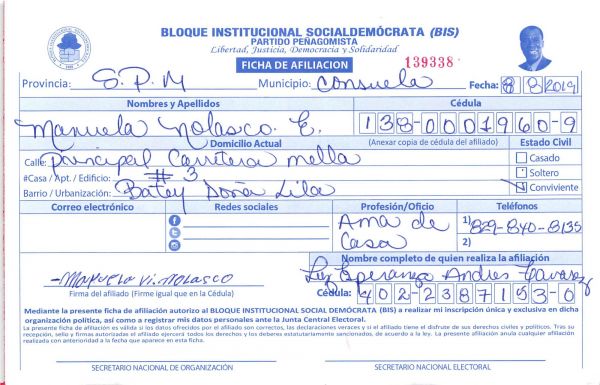 BLOQUE INSTITUCIONAL SOCIALDEMÓCRATA (BIS)
PARTIDO PEÑAGOMISTA
Libertad, Justicia, Democracia y Solidaridad
FICHA DE AFILIACION 139338
Provincia: S.P.M Municipio: Consuelo Fecha: 8 8 2019
Nombres y Apellidos Cédula
Manuela Nolasco. E. 138-0001960-9
Domicilio Actual (Anexar copia de cédula del afiliado) Estado Civil
Calle: Principal Carretera mella Casado
#Casa / Apt. / Edificio: # 3 Soltero
Barrio / Urbanización: Batey Doña Lila Conviviente
Correo electrónico Redes sociales Profesión/Oficio Teléfonos
Ama de Casa 1) 829-840-8135
2)
Nombre completo de quien realiza la afiliación
Manuela Vi. Nolasco Luz Esperanza Andres Tavarez
Firma del afiliado (Firme igual que en la Cédula) Cédula: 402-2387153-0
Mediante la presente ficha de afiliación autorizo al BLOQUE INSTITUCIONAL SOCIAL DEMÓCRATA (BIS) a realizar mi inscripción única y exclusiva en dicha
organización política, así como a registrar mis datos personales ante la Junta Central Electoral.
La presente ficha de afiliación es válida si los datos ofrecidos por el afiliado son correctos, las declaraciones veraces y si el afiliado tiene el disfrute de sus derechos civiles y políticos. Tras su
recepción, sello y firmas autorizadas el afiliado ejercerá todos los derechos y los deberes estatutariamente sancionados, de acuerdo a la ley. La presente afiliación anula cualquier afiliación
realizada con anterioridad a la fecha que aparece en esta ficha.
SECRETARIO NACIONAL DE ORGANIZACIÓN SECRETARIO NACIONAL ELECTORAL